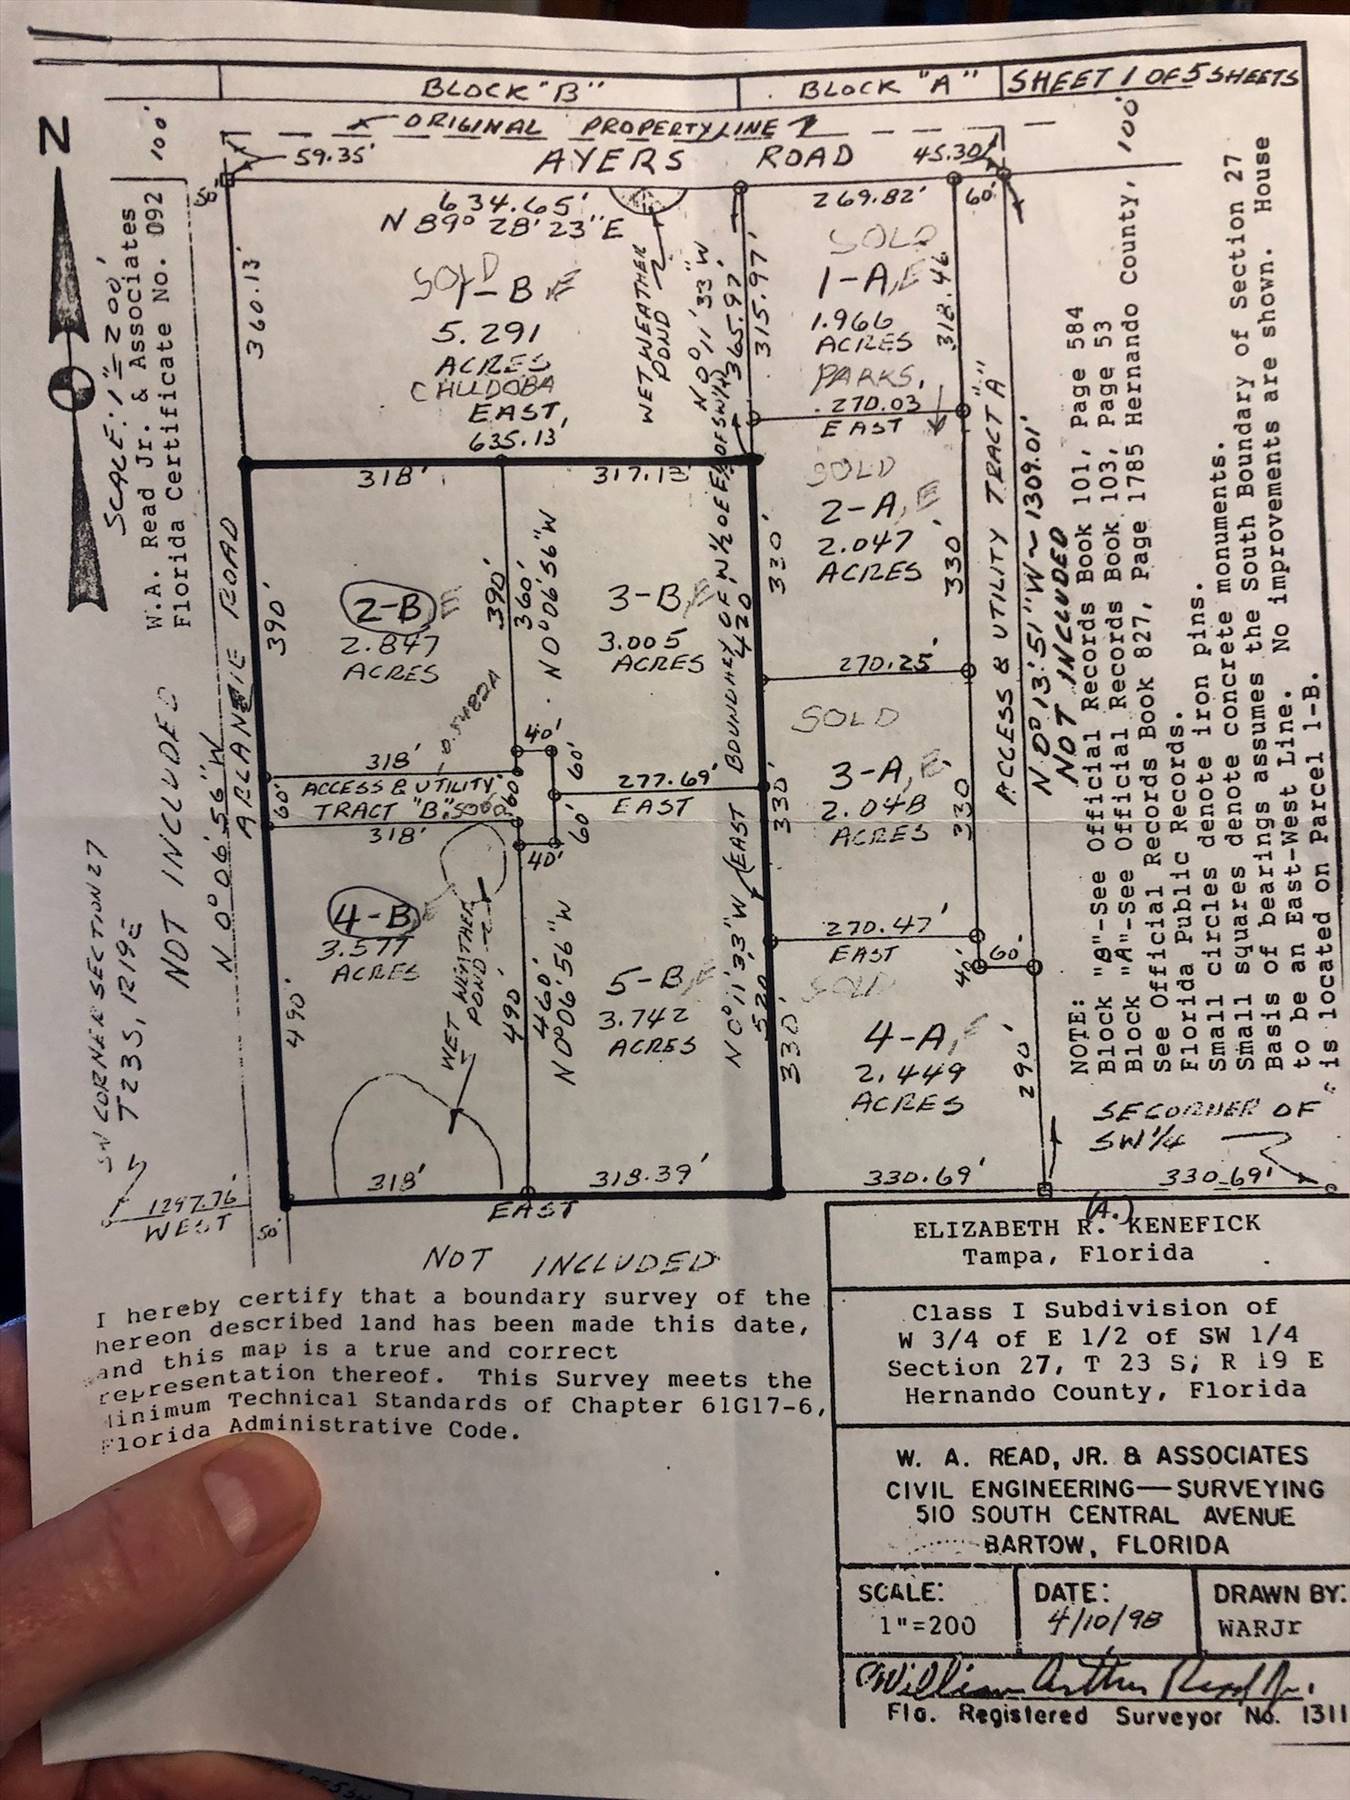 BLOCK "B"
BLOCK "A"
SHEET 1 OF 5 SHEETS
ORIGINAL PROPERTY LINE
N
100'
59.35'
AYERS ROAD
45.30'
100'
634.65'
N 89° 28' 23" E
269.82'
60'
SCALE: 1"=200'
W.A. Read Jr. & Associates
Florida Certificate No. 092
360.13'
SOLD
1-B, E
5.291
ACRES
CHUDOBA
EAST,
635.13'
WET WEATHER
POND
N 0° 11' 33" W
365.97'
315.97'
SOLD
1-A, E
1.966
ACRES
PARKS,
318.46
270.03
EAST
318'
317.13'
SOLD
2-A, E
2.047
ACRES
330'
330'
270.25'
2-B E
2.847
ACRES
390'
390'
360'
N 0° 06' 56" W
3-B, E
3.005
ACRES
420'
BOUNDARY OF W 1/2 OF E 1/2 OF SW 1/4
0.5482A
318'
ACCESS & UTILITY
TRACT "B"
318'
60'
60'
40'
60'
60'
40'
277.69'
EAST
SOLD
3-A, E
2.048
ACRES
330'
330
270.47'
EAST
ARLANE ROAD
ACCESS & UTILITY TRACT "A"
N 0° 13' 51" W ~ 1309.01'
NOT INCLUDED
NOT INCLUDED
N 0° 06' 56" W
4-B E
3.577
ACRES
490'
490'
460'
N 0° 06' 56" W
WET WEATHER
POND
5-B, E
3.742
ACRES
N 0° 11' 33" W
EAST
520'
SOLD
4-A, E
2.449
ACRES
330'
40'
60'
290'
SW CORNER SECTION 27
T23S, R19E
1297.76'
WEST
50'
318'
EAST
318.39'
330.69'
330.69'
SE CORNER OF
SW 1/4
NOT INCLUDED
NOTE:
Block "B"-See Official Records Book 101, Page 584
Block "A"-See Official Records Book 103, Page 53
See Official Records Book 827, Page 1785 Hernando County,
Florida Public Records.
Small circles denote iron pins.
Small squares denote concrete monuments.
Basis of bearings assumes the South Boundary of Section 27
to be an East-West Line. No improvements are shown. House
is located on Parcel 1-B.
I hereby certify that a boundary survey of the
hereon described land has been made this date,
and this map is a true and correct
representation thereof. This Survey meets the
Minimum Technical Standards of Chapter 61G17-6,
Florida Administrative Code.
ELIZABETH R. (A.) KENEFICK
Tampa, Florida
Class I Subdivision of
W 3/4 of E 1/2 of SW 1/4
Section 27, T 23 S, R 19 E
Hernando County, Florida
W. A. READ, JR. & ASSOCIATES
CIVIL ENGINEERING—SURVEYING
510 SOUTH CENTRAL AVENUE
BARTOW, FLORIDA
SCALE:
1"=200
DATE:
4/10/98
DRAWN BY:
WARJr
William Arthur Read Jr.
Fla. Registered Surveyor No. 1311